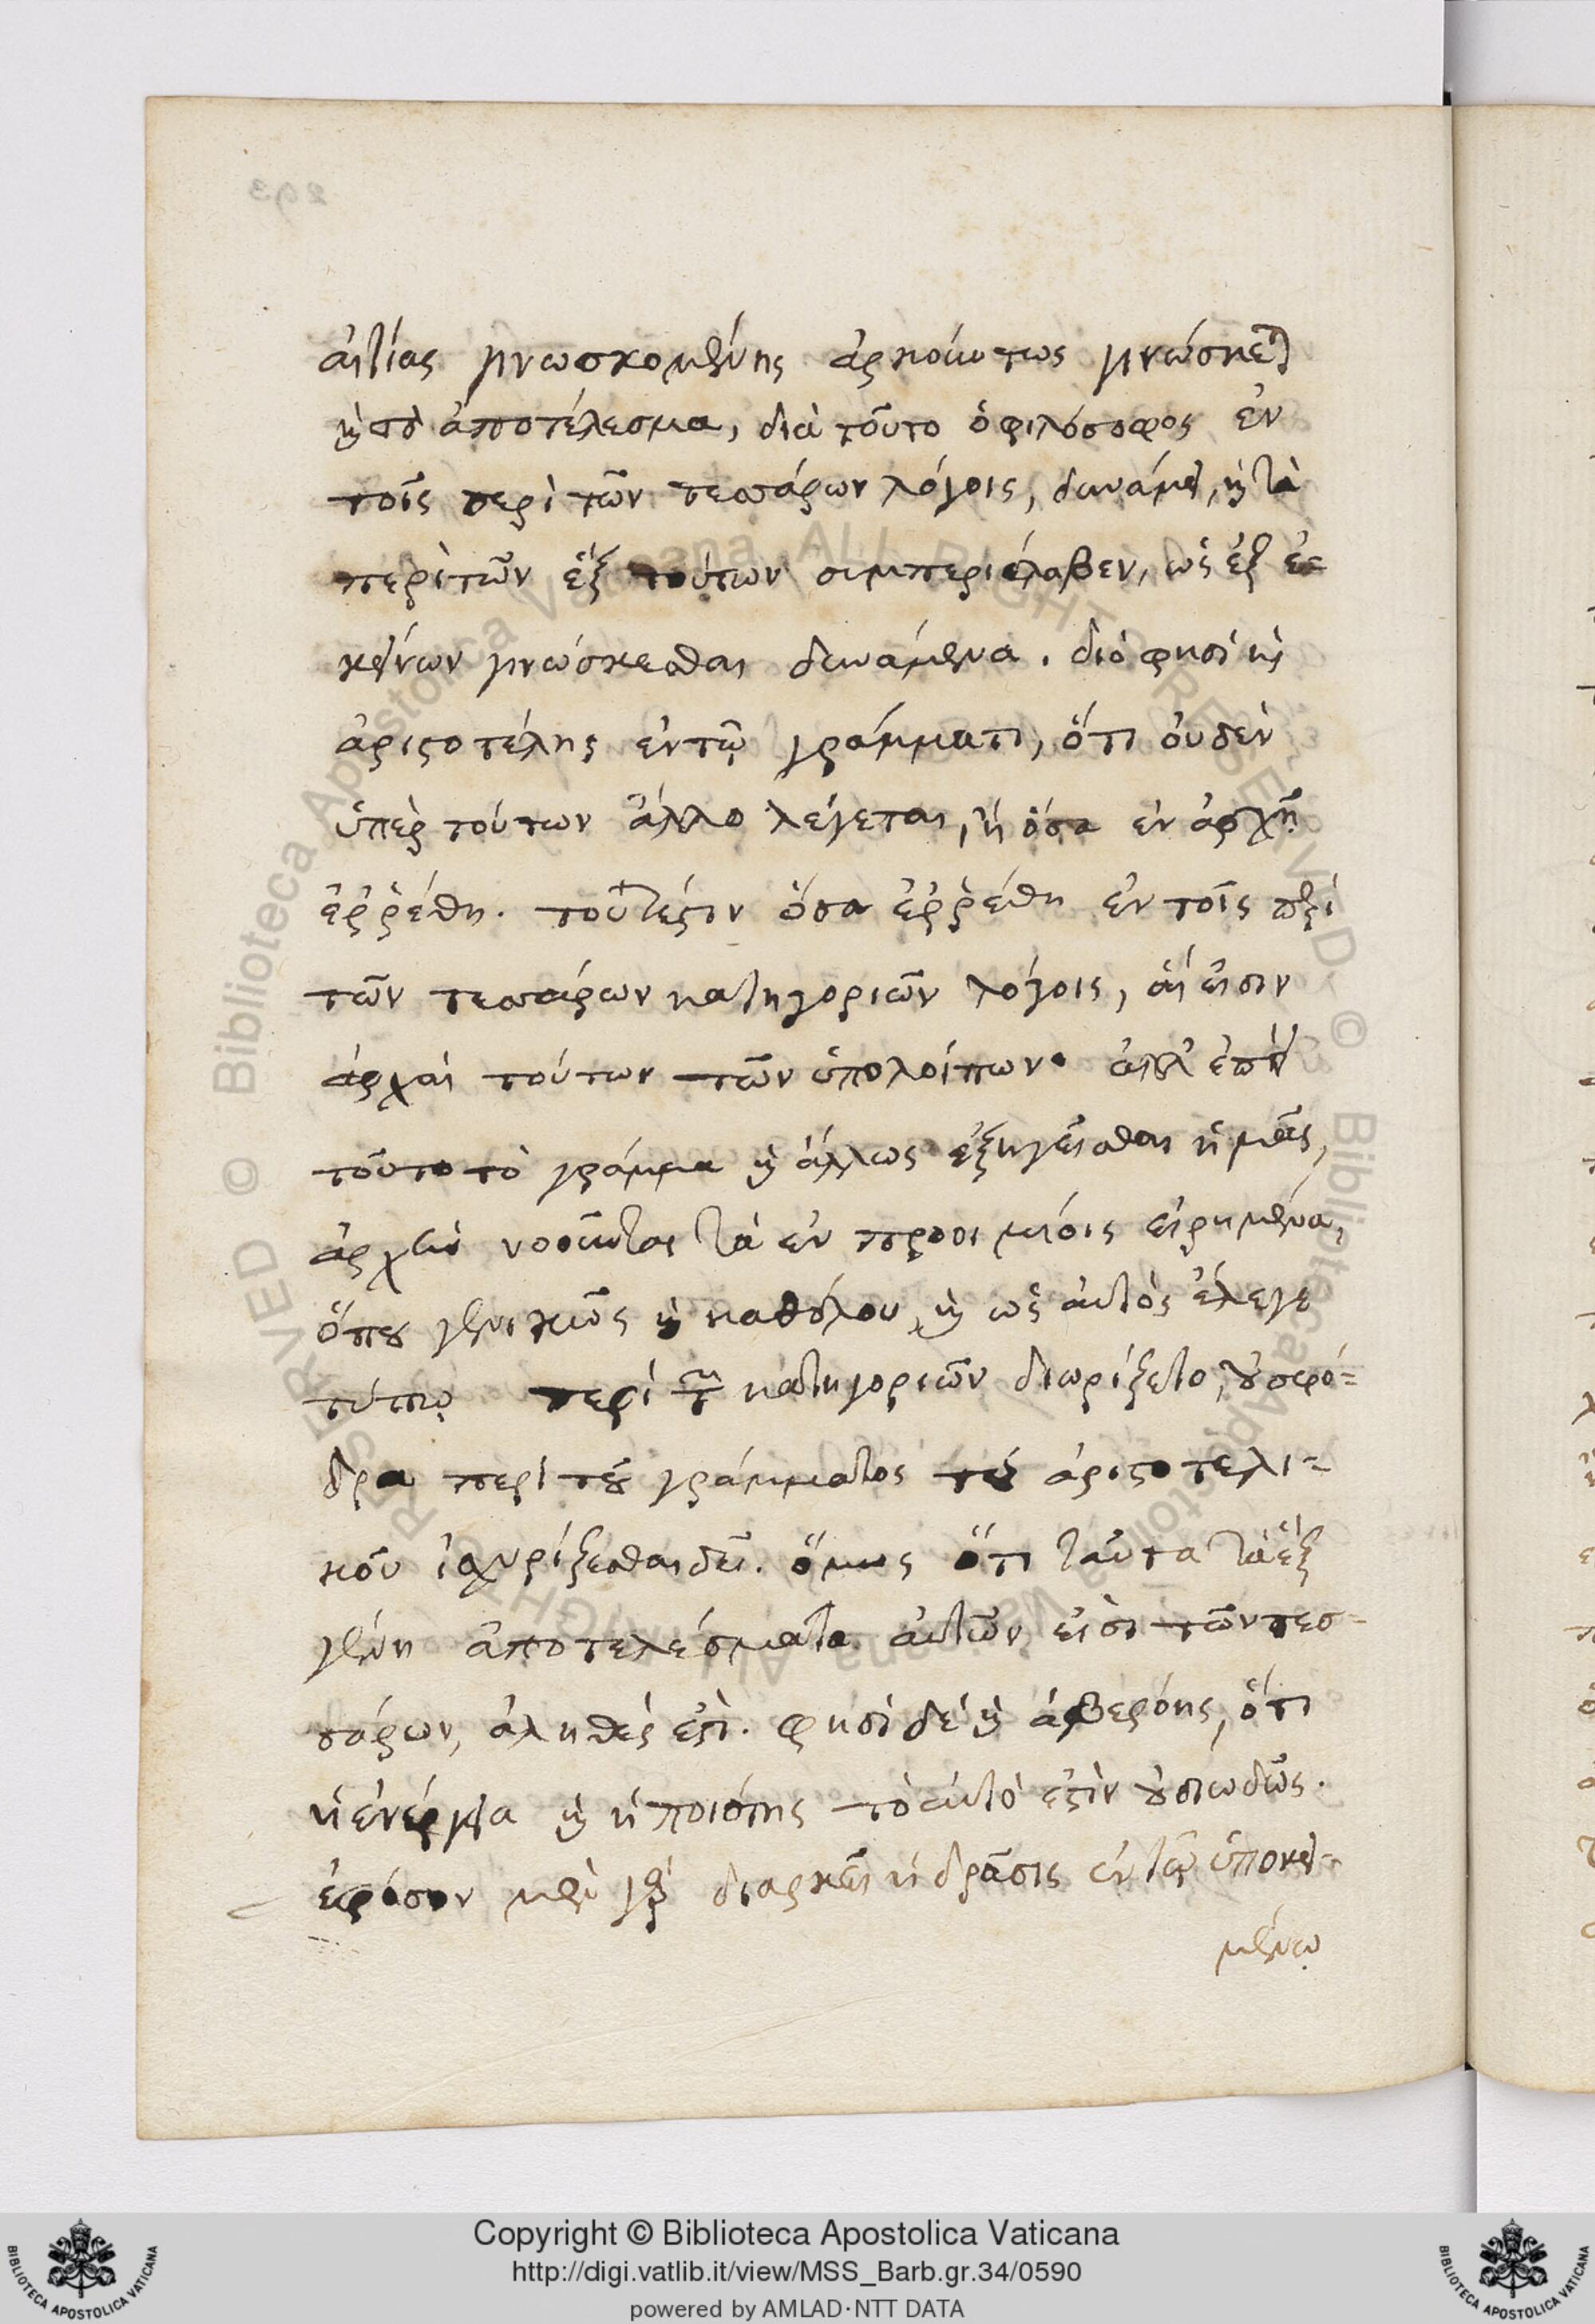 αἰτίας γινωσκομένης ἀρκούντως γινώσκεται
καὶ τὸ ἀποτέλεσμα, διὰ τοῦτο ὁ φιλόσοφος ἐν
τοῖς περὶ τῶν τεσσάρων λόγοις, δυνάμει, καὶ τὰ
περὶ τῶν ἓξ τούτων συμπεριέλαβεν, ὡς ἐξ ἐ-
κείνων γινώσκεσθαι δυνάμενα. διό φησι καὶ
ἀριστοτέλης ἐν τῷ γράμματι, ὅτι οὐδὲν
ὑπὲρ τούτων ἄλλο λέγεται, ἢ ὅσα ἐν ἀρχῇ
ἐῤῥέθη. τοῦτέστιν ὅσα ἐῤῥέθη ἐν τοῖς περὶ
τῶν τεσσάρων κατηγοριῶν λόγοις, αἵ εἰσιν
ἀρχαὶ τούτων τῶν ὑπολοίπων. ἀλλ'
τοῦτο τὸ γράμμα καὶ ἄλλως ἐξηγεῖσθαι ἡμᾶς,
ἀρχὴν νοοῦντας τὰ ἐν προοιμίοις εἰρημένα,
ὅπου γενικῶς καὶ καθόλου, καὶ ὡς αὐτὸς ἔλεγε
τύπῳ περὶ τῶν κατηγοριῶν διωρίζετο, οὐ σφό-
δρα περὶ τοῦ γράμματος τοῦ ἀριστοτελι-
κοῦ ἰσχυρίζεσθαι δεῖ. ὅμως ὅτι ταῦτα τὰ ἓξ
γένη ἀποτελέσματα αὐτῶν εἰσι τῶν τεσ-
σάρων, ἀληθές ἐστι. φησὶ δὲ καὶ ἀβερόης, ὅτι
ἡ ἐνέργεια καὶ ἡ ποιότης τὸ αὐτό ἐστιν οὐσιωδῶς.
ἐφόσον μὲν γὰρ διαρκεῖ ἡ δρᾶσις ἐν τῷ ὑποκει-
μένῳ
Copyright © Biblioteca Apostolica Vaticana
http://digi.vatlib.it/view/MSS_Barb.gr.34/0590
powered by AMLAD·NTT DATA